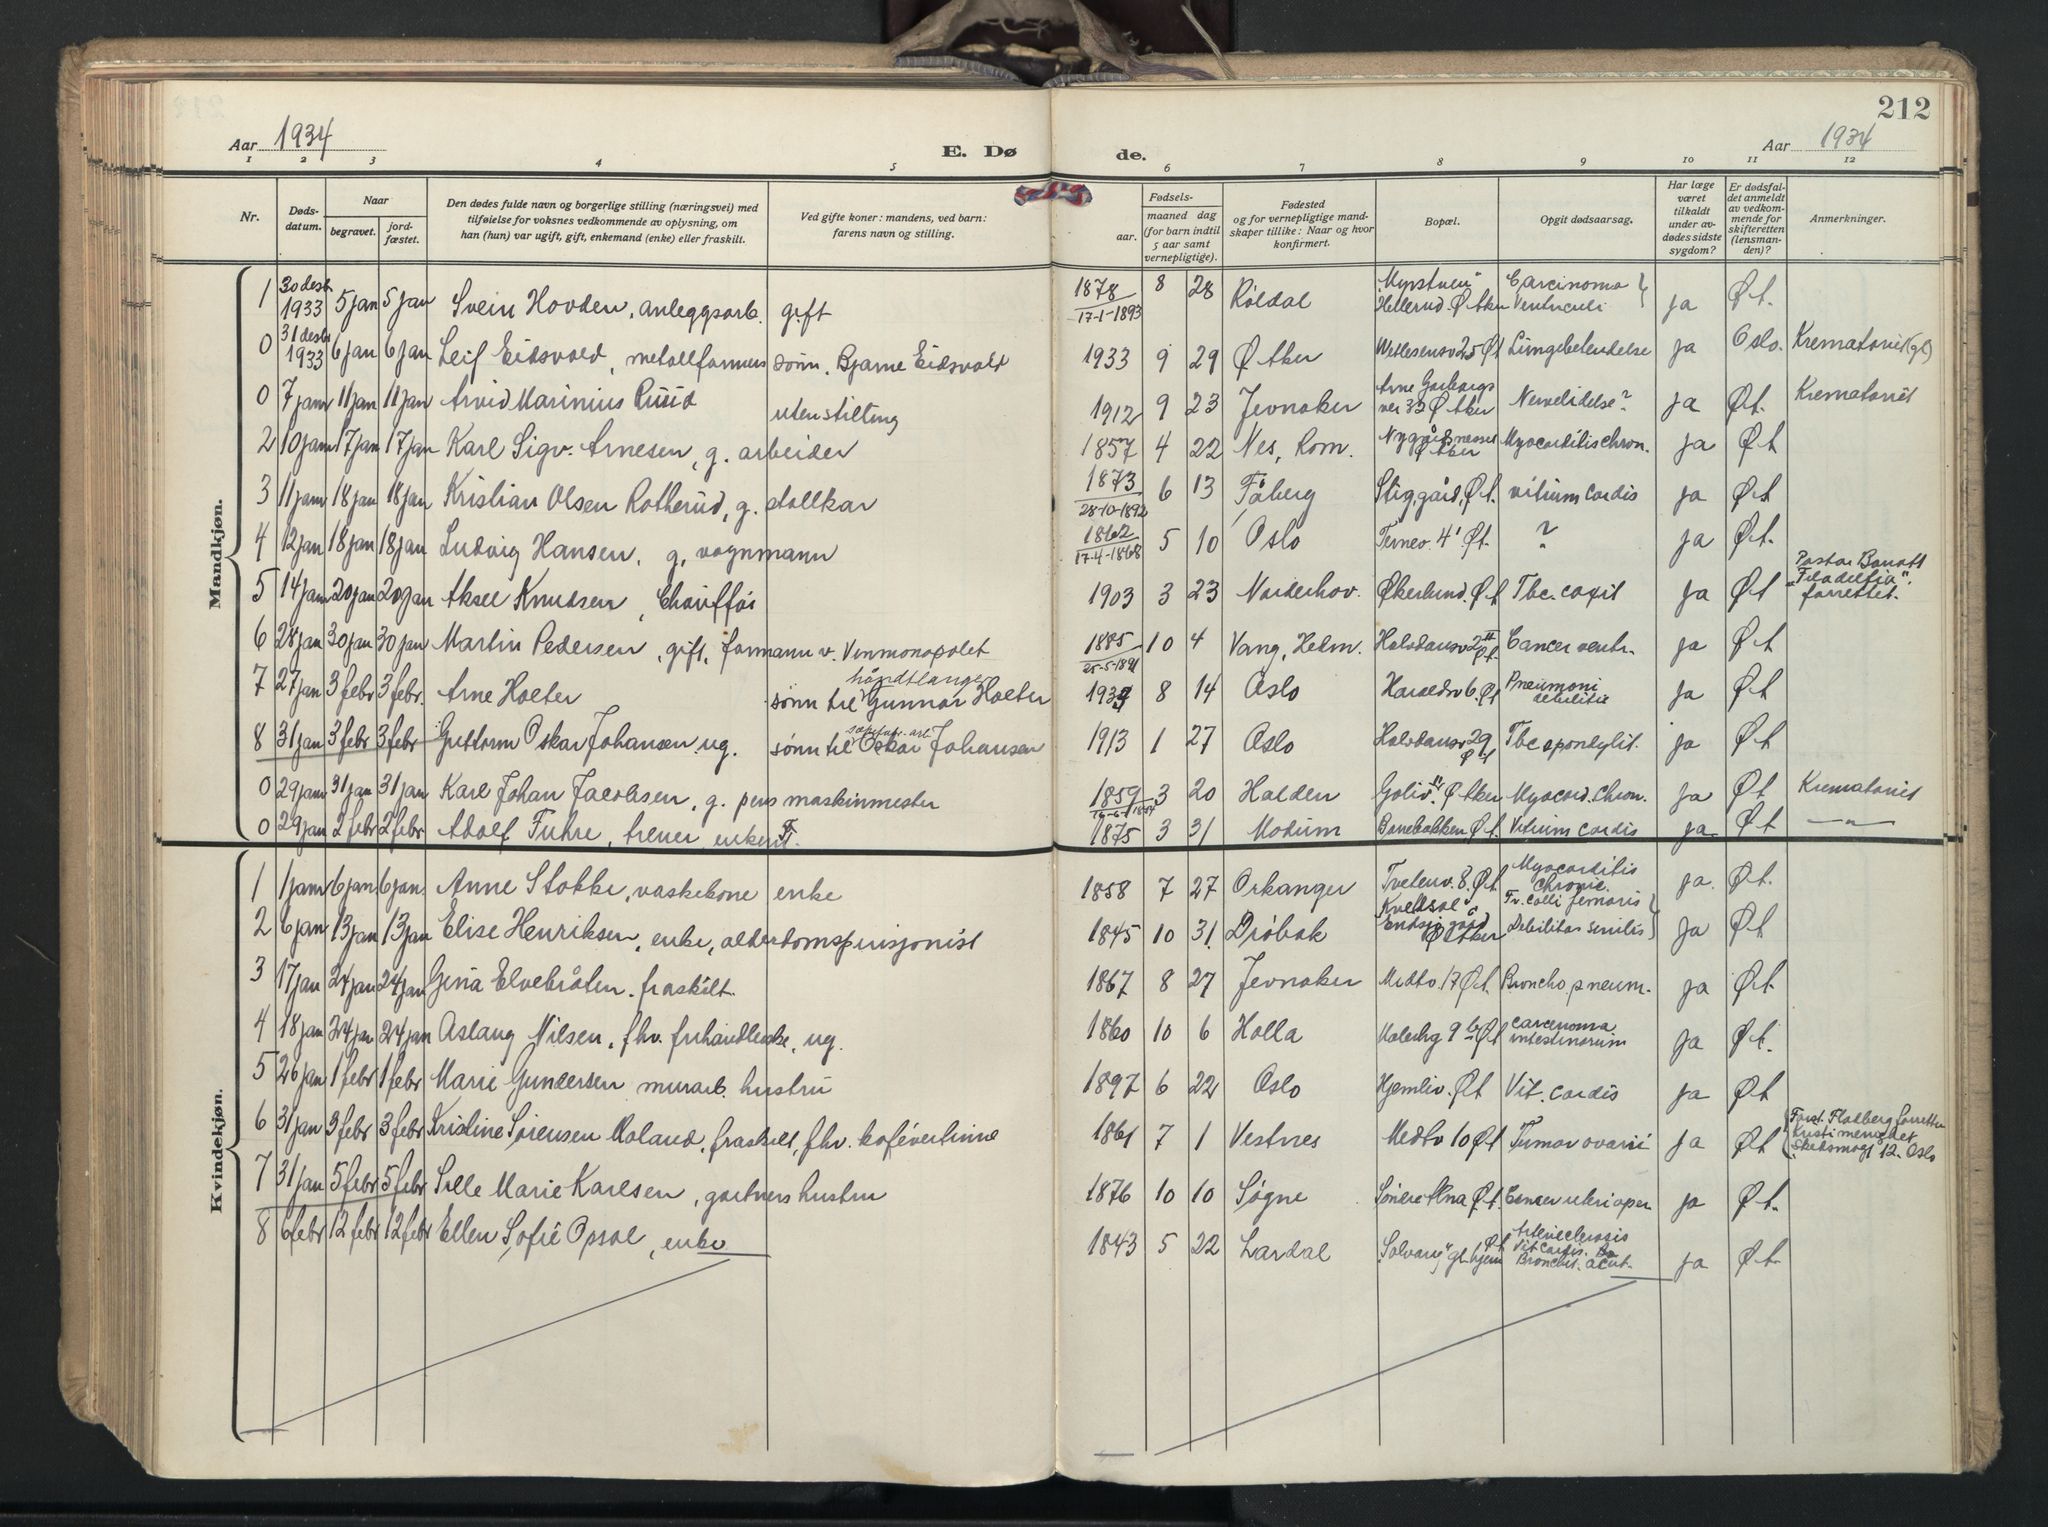 212
Aar 1934
E. Dø
de.
Aar 1934
1 2 3 4 5 6 7 8 9 10 11 12
Nr.
Døds-
datum.
Naar
begravet.
jord-
fæstet.
Den dødes fulde navn og borgerlige stilling (næringsvei) med
tilføielse for voksnes vedkommende av oplysning, om
han (hun) var ugift, gift, enkemand (enke) eller fraskilt.
Ved gifte koner: mandens, ved barn:
farens navn og stilling.
Fødsels-
aar.
maaned dag
(for barn indtil
5 aar samt
vernepligtige).
Fødested
og for vernepligtige mand-
skaper tillike: Naar og hvor
konfirmert.
Bopæl.
Opgit dødsaarsag.
Har læge
været
tilkaldt
under av-
dødes sidste
sygdom?
Er dødsfal-
det anmeldt
av vedkom-
mende for
skifteretten
(lensman-
den)?
Anmerkninger.
Mandkjøn.
1 30 desb 1933 5 jan 5 jan Svein Hovden, anleggsarb. gift 1878 17-1-1893 8 28 Røldal Hellerud. Ø Aker Carcinoma Ventriculi ja Øt.
0 31 desb 1933 6 jan 6 jan Leif Eidsvold, sønn. Bjarne Eidsvold 1933 9 29 Ø Aker Wetlesensv 25 Øt Lungebetendelse ja Oslo. Krematoriet (gl)
0 7 janr 11 jan 11 jan Arvid Marinius Ruud uten stilling 1912 9 23 Jevnaker Arne Garborgs vei 33 Ø Aker Nervelidelse? ja Øt. Krematoriet
2 10 janr 17 jan 17 jan Karl Sigv. Arnesen, g. arbeider 1857 4 22 Nes, Rom. Ø Aker Myocarditis chron. ja Øt
3 11 janr 18 jan 18 jan Kristian Olsen Rotherud, g. stallkar 1873 28-10-1892 6 13 Fåberg Stig gård, Øt. vitium cordis ja Øt
4 12 jan 18 jan 18 jan Ludvig Hansen, g. vognmann 1862 17-4-1868 5 10 Oslo Ternev. 4 Øt. ? ja Øt.
5 14 jan 20 jan 20 jan Aksel Knudsen, Chauffør 1903 3 23 Norderhov. Økerlund. Øt Tbc. coxit ja Øt Pastor Barratt "Filadelfia". forrettet.
6 28 jan 30 jan 30 jan Martin Pedersen, gift, formann v. Vinmonopolet 1885 25-5-1891 10 4 Vang, Hedm. Halvdansv 2 II Øt. Cancer ventr. ja Øt
7 27 jan 3 febr 3 febr. Arne Holter sønn til håndtlanger Gunnar Holter 1933 8 14 Oslo Haraldsv 6. Øt Pneumoni debilitas ja Øt
8 31 jan 3 febr 3 febr Guttorm Oskar Johansen. ug. sønn til Oskar Johansen 1913 1 27 Oslo Halvdansv 29 Øt Tbc spondylit. ja Øt
0 29 jan 31 jan 31 jan Karl Johan Jacobsen, g. pens maskinmester 1859 3 20 Halden Goliv. Ø Aker Myocard. chron. ja Øt Krematoriet
0 29 jan 2 febr 2 febr Adolf Fuhre, trener, enkem. 1875 3 31 Modum Banebakken Øt. Vitium cordis ja Øt — " —
Kvindekjøn.
1 1 janr 6 jan 6 jan. Anne Stokke, vaskekone enke 1858 7 27 Orkanger Tvetenv. 8. Øt Myocarditis chronic. ja. Øt.
2 6 jan 13 jan 13 jan Elise Henriksen, enke, alderdomspensjonist 1845 10 31 Drøbak Ø Aker Fr. colli femoris Debilitas senilis ja Øt
3 17 jan 24 jan 24 jan Gina Elvebråten. fraskilt. 1867 8 27 Jevnaker Medtv. 17 Øt. Broncho.pneum. ja Øt.
4 18 jan 24 jan 24 jan Aslaug Nilsen, fhv. frihandlerske, ug. 1860 10 6 Holla 9 b Øt carcinoma intestinorum ja Øt.
5 26 jan 1 febr 1 febr Marie Gundersen murarb. hustru 1897 6 22 Oslo Hjemliv. Øt Vit. cordis ja Øt
6 31 jan 3 febr 3 febr Kristine Sørensen Roland, fraskilt, fhv. kafévertinne 1861 7 1 Vestnes Medtv 10 Øt Tumor ovarii ja Øt Forst. Flodberg forrettet Kristi menighet Skedsmogt 12. Oslo
7 31 jan 5 febr 5 febr Sille Marie Karlsen, gartners hustru 1876 10 10 Søgne Søndre Øt. Cancer uteri oper ja Øt.
8 6 febr 12 febr 12 febr Ellen Sofie Opsal, enke 1843 5 22 Lardal "Solvang" gl. hjem Øt Arteriesclerosis Vit cordis. Bronchit. acut. ja Øt.